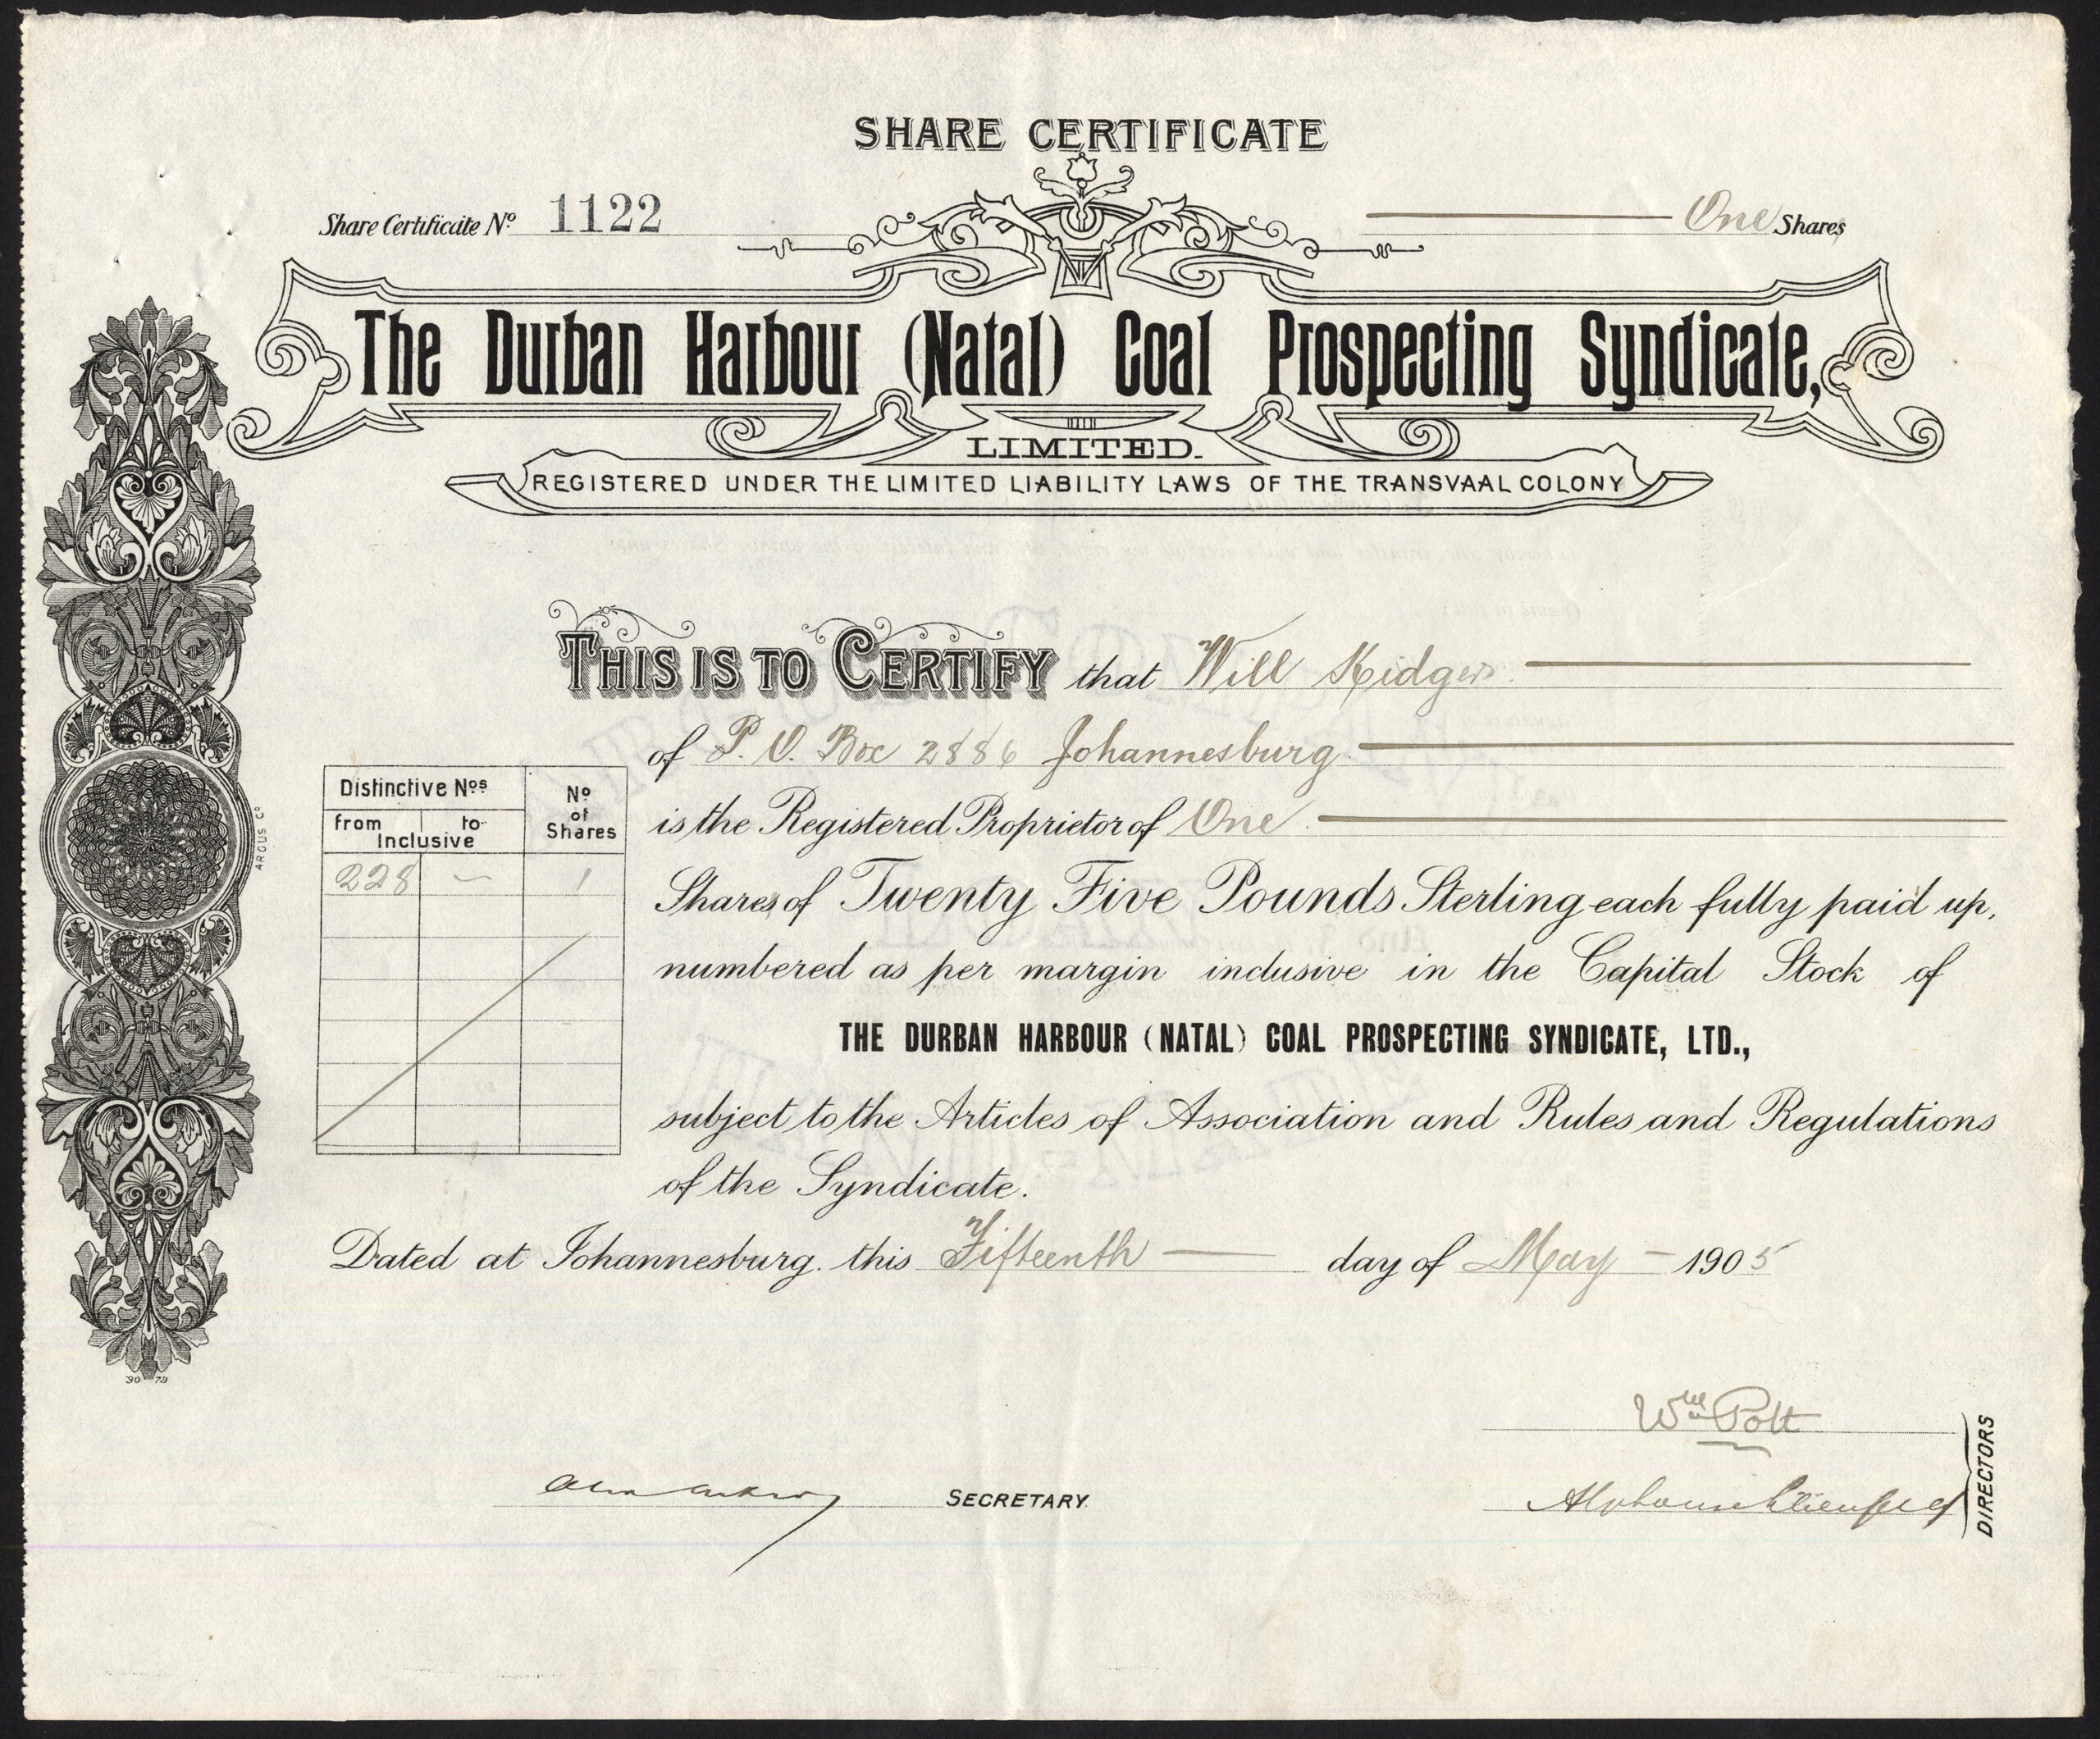 SHARE CERTIFICATE
Share Certificate No. 1122
One Shares
The Durban Harbour (Natal) Coal Prospecting Syndicate,
LIMITED.
REGISTERED UNDER THE LIMITED LIABILITY LAWS OF THE TRANSVAAL COLONY
THIS IS TO CERTIFY that Will Kidger
of P. O. Box 2886 Johannesburg
is the Registered Proprietor of One
Shares of Twenty Five Pounds Sterling each fully paid up,
numbered as per margin inclusive in the Capital Stock of
THE DURBAN HARBOUR (NATAL) COAL PROSPECTING SYNDICATE, LTD.,
subject to the Articles of Association and Rules and Regulations
of the Syndicate.
Distinctive Nos
No of Shares
from to
Inclusive
228 — 1
Dated at Johannesburg. this Fifteenth day of May 1905
Wm Pott
SECRETARY
DIRECTORS
ARGUS Co
30 79